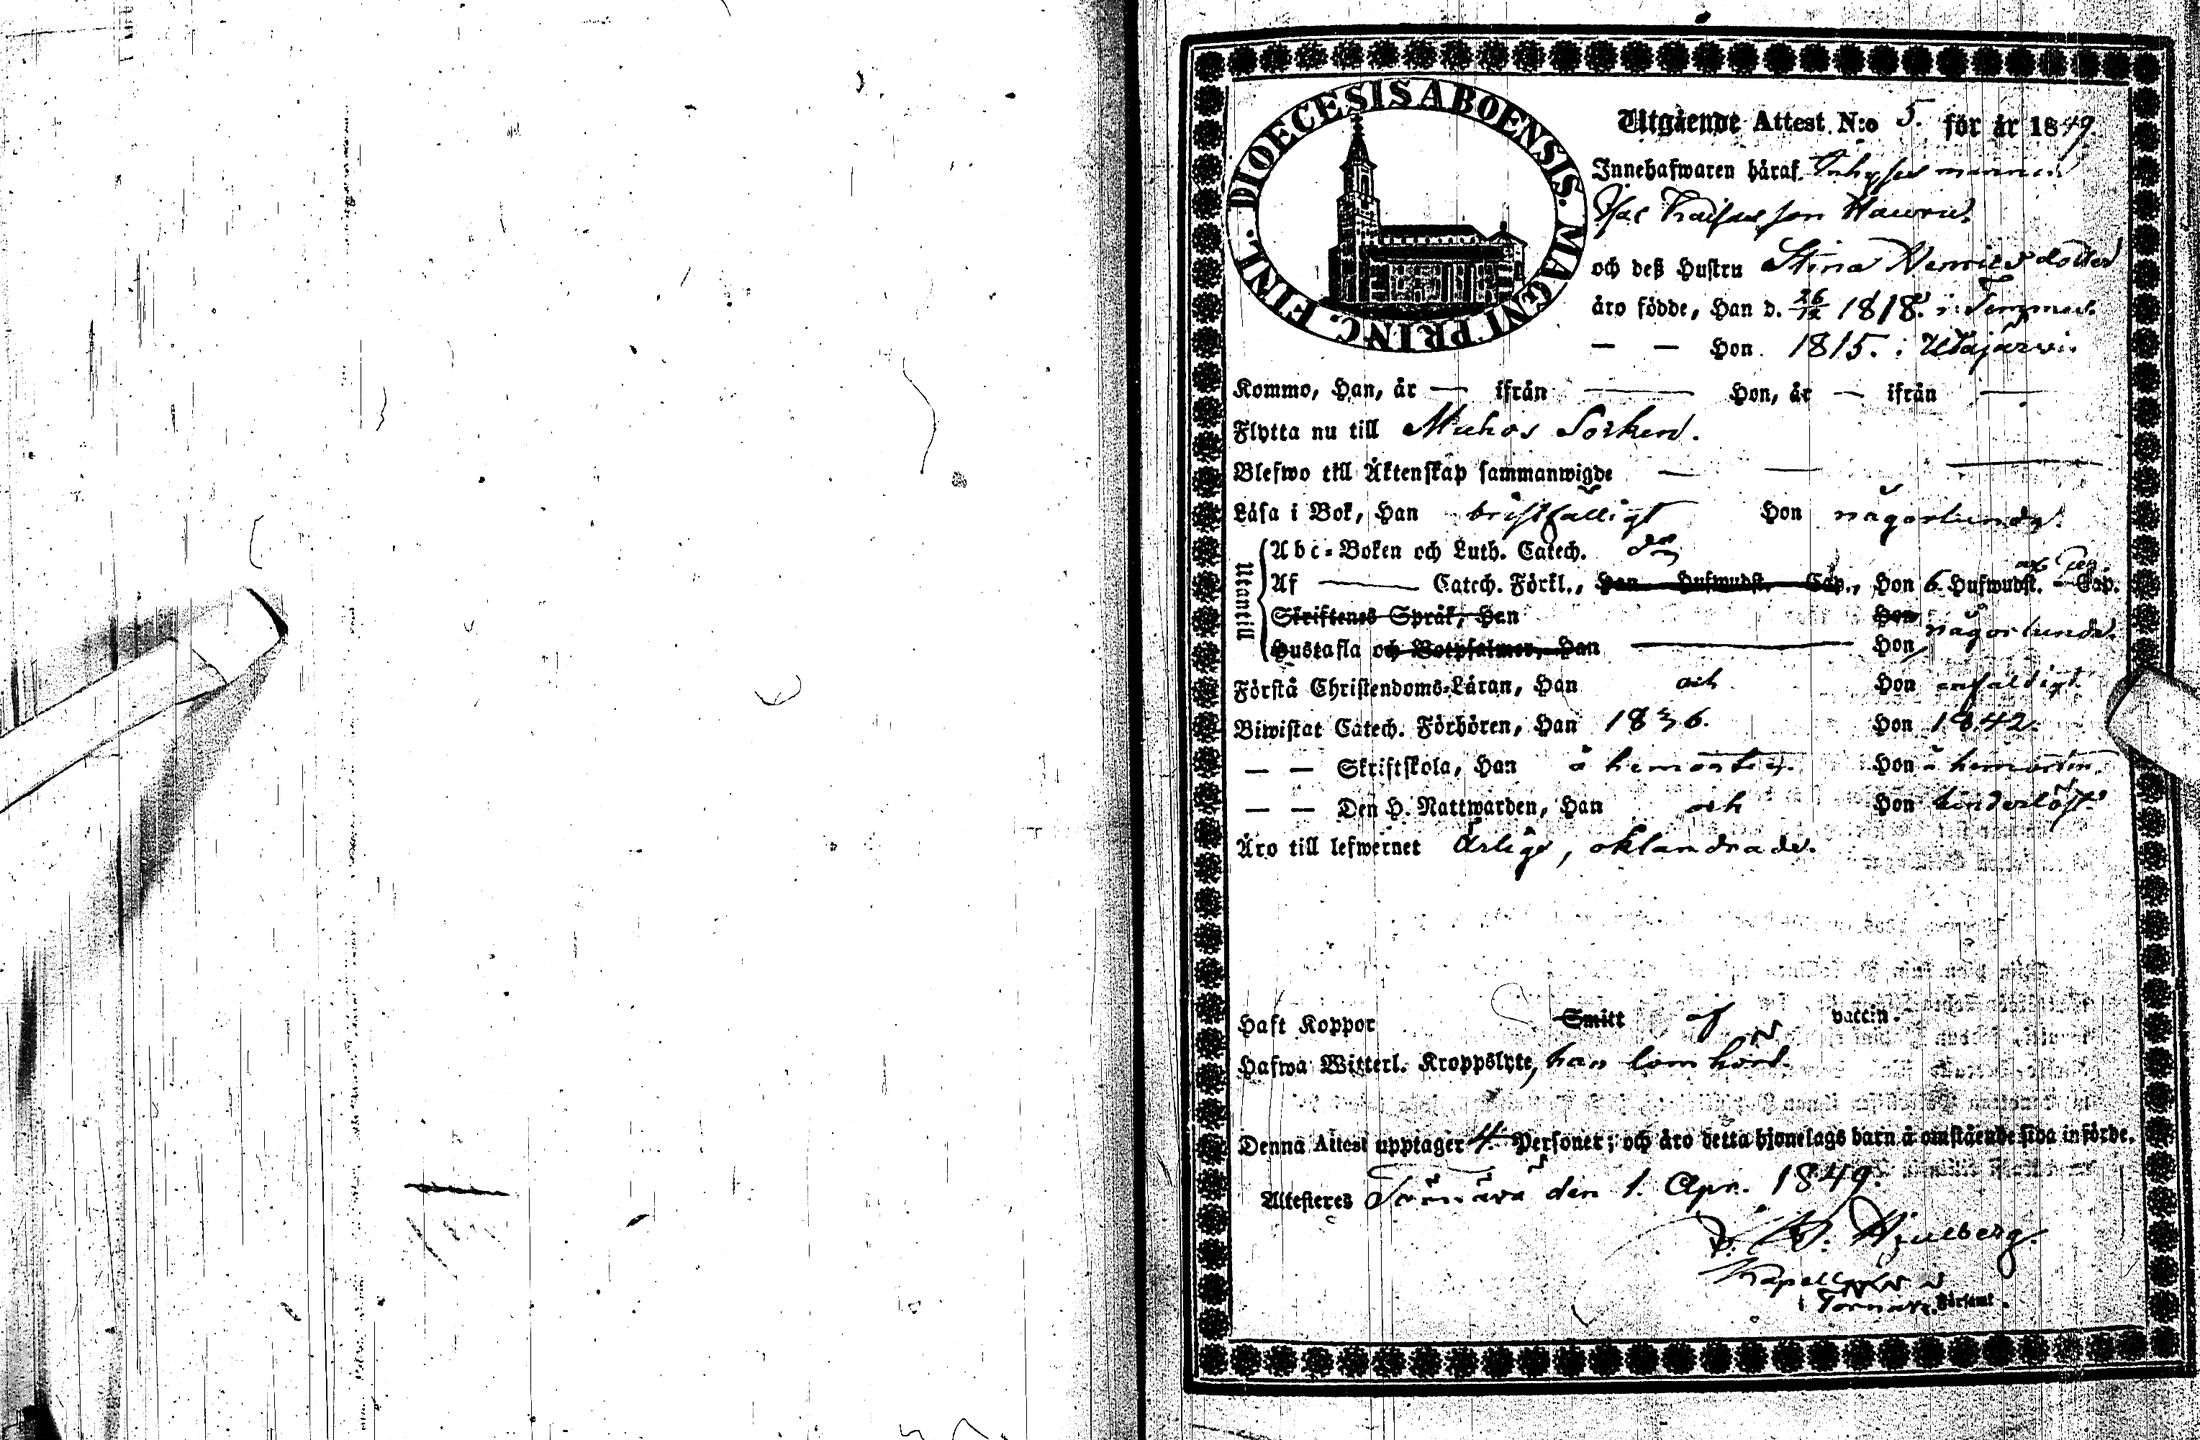 DIOECESIS ABOENSIS. MAGNI PRINC. FINL.
Utgående Attest N:o 5. för år 1849.
Innehafwaren häraf Inhyses mannen
Isac Isaksson
och deß Hustru Stina Henricsdotter
äro födde, Han d. 26/12 1818. i Temmes.
— — Hon 1815. i Utajärwi.
Kommo, Han, år — ifrån — Hon, år — ifrån —
Flytta nu till Muhos Socken.
Blefwo till Äktenskap sammanwigde — — —
Läsa i Bok, Han bristfälligt Hon någorlunda.
Utantill
Abc-Boken och Luth. Catech. do
Af — Catech. Förkl., Han Hufwudst. Cap., Hon 6 Hufwudst. - Cap.
Skriftenes Språk, Han Hon
Hustafla och Botpsalmer, Han — Hon någorlunda.
Förstå Christendoms-Läran, Han och Hon enfaldigt.
Biwistat Catech. Förhören, Han 1836. Hon 1842.
— — Skriftskola, Han å hemorten. Hon å hemorten.
— — Den H. Nattwarden, Han och Hon hinderlöst.
Äro till lefwernet Ärlige, oklandrade.
Haft Koppor Smitt af vaccin.
Hafwa Witterl. Kroppslyte, han lomhörd.
Denna Attest upptager 4. Personer; och äro detta hjonelags barn å omstående sida införde.
Attesteres Tyrnävä den 1. Apr. 1849.
Hjulberg.
Kapellan
i Församl.